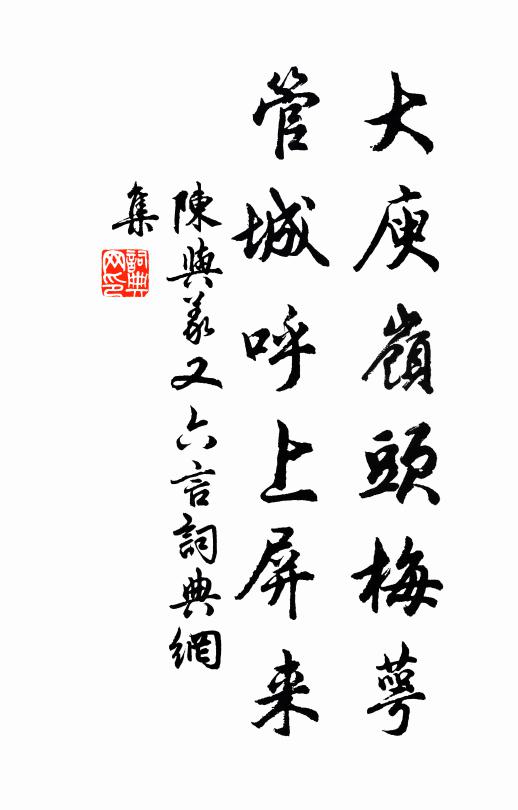 大庾嶺頭梅萼
管城呼上屏来
陳與義又六言詞典網
集
詞典网印